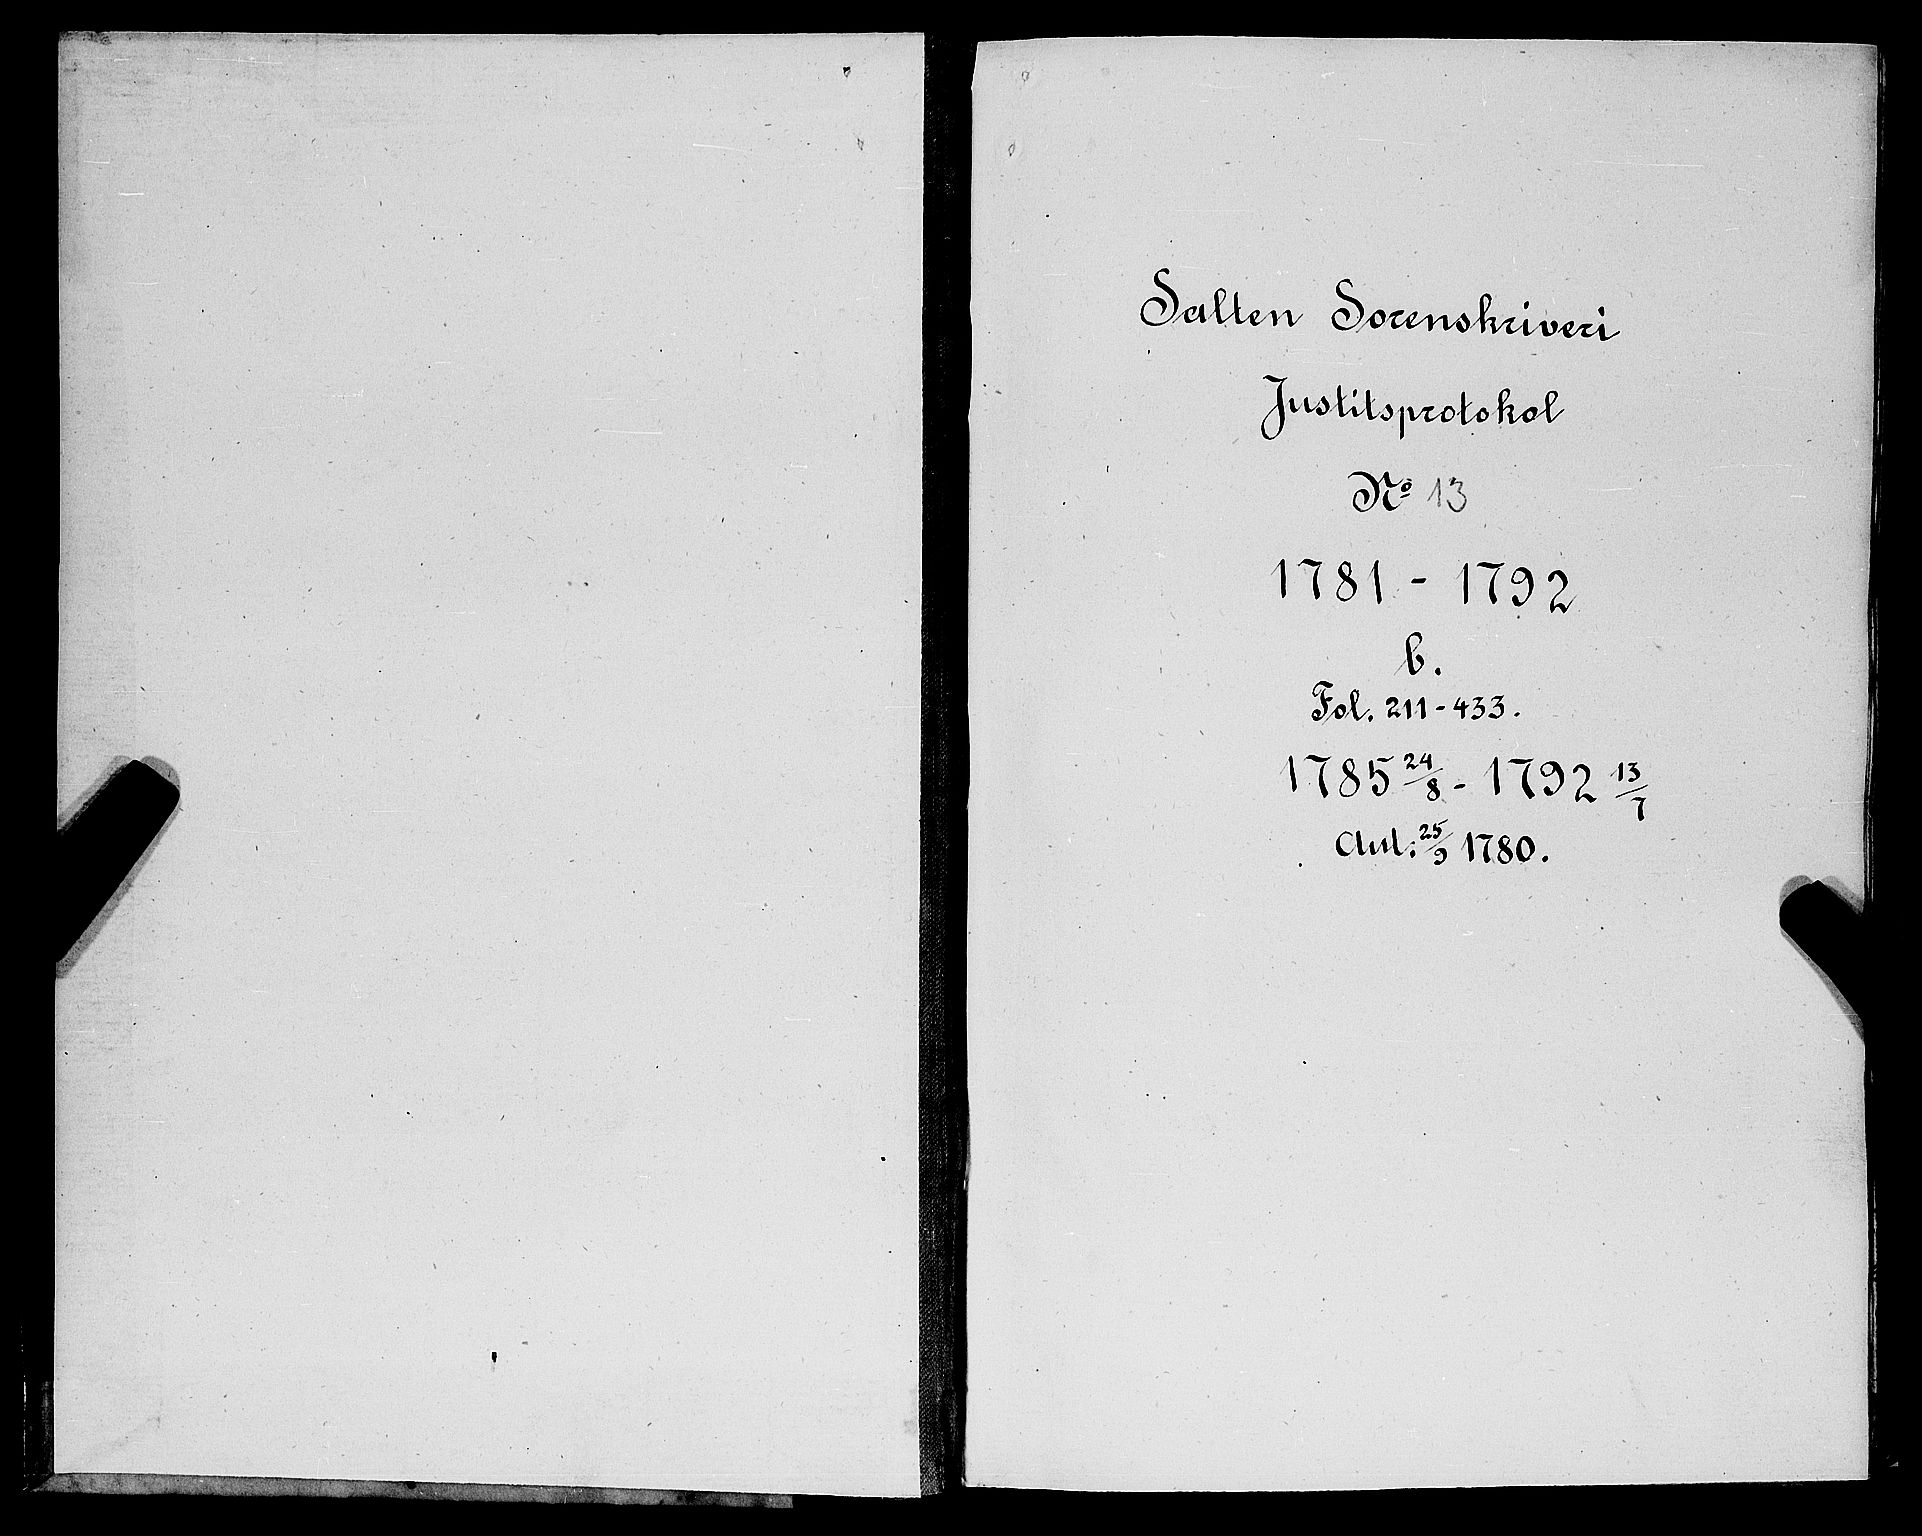 Salten Sorenskriveri
Justitsprotokol
Nº 13
1781 - 1792
b.
Fol. 211-433.
1785 24/8 - 1792 13/7
Aut: 25/9 1780.